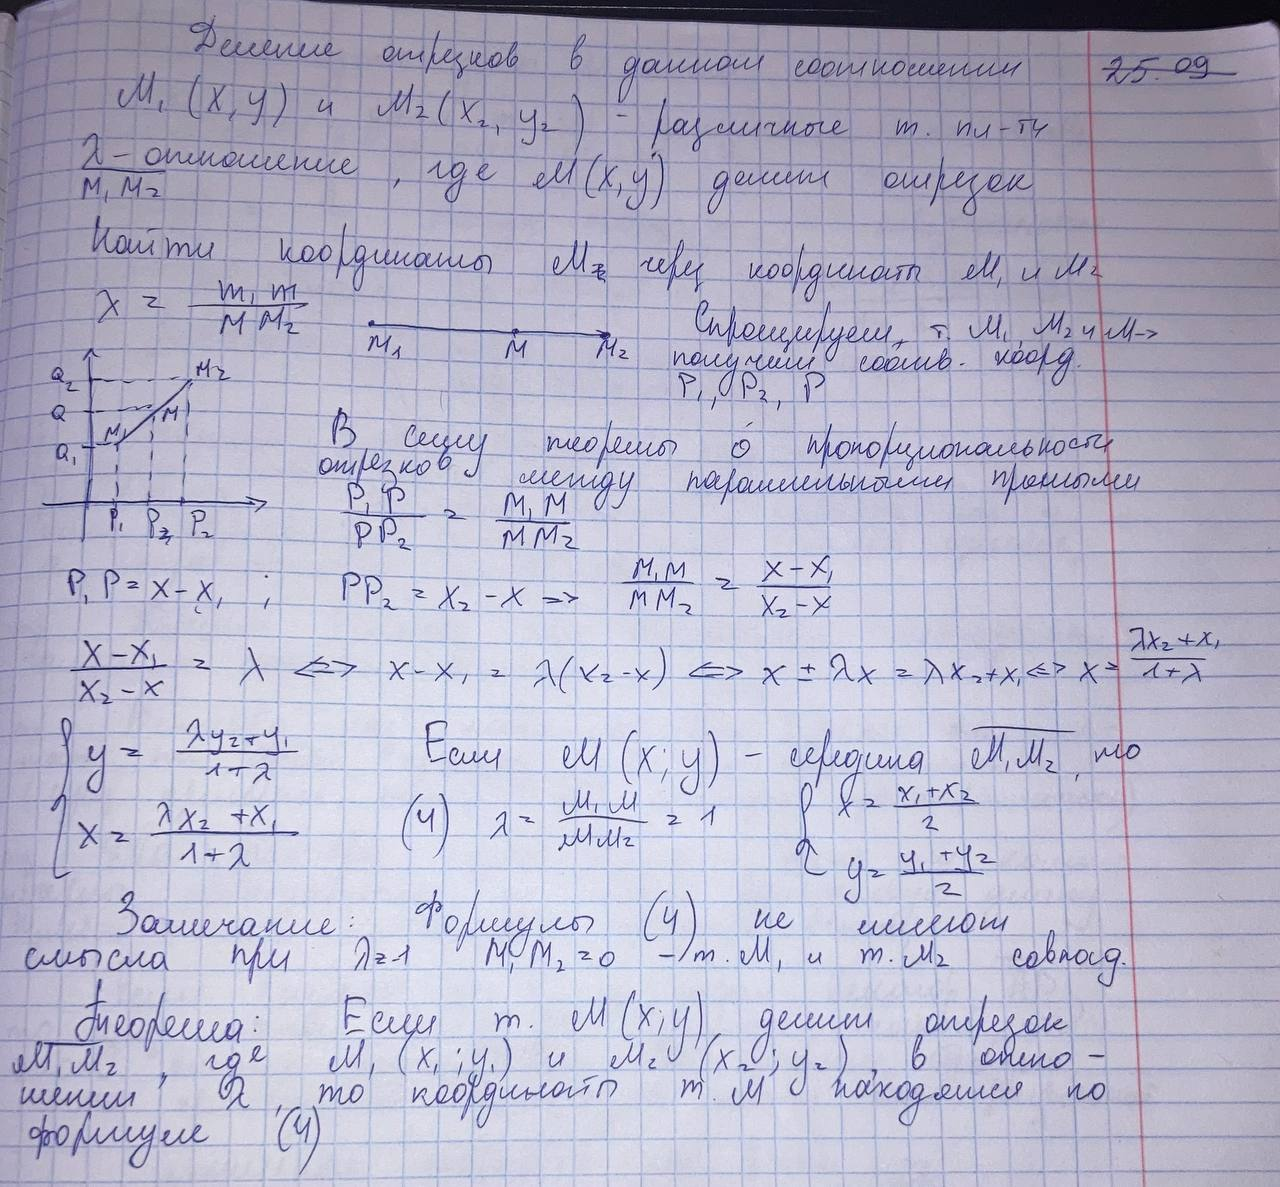 Деление отрезков в данном соотношении 25.09
M₁ (x, y) и M₂ (x₂, y₂) - различные т. пл-ти
λ - отношение, где M(x, y) делит отрезок
M₁M₂
Найти координаты M через координаты M₁ и M₂
λ = m₁m / MM₂
M₁ M M₂
Спроцируем т. M₁, M₂ и M →
получим соотв. коорд.
P₁, P₂, P
Q₂ M₂
Q M
M₁
Q₁
P₁ P P₂
В силу теоремы о пропорциональности
отрезков между параллельными прямыми
P₁P / PP₂ = M₁M / MM₂
P₁P = x - x₁ ; PP₂ = x₂ - x => M₁M / MM₂ = x - x₁ / x₂ - x
x - x₁ / x₂ - x = λ <=> x - x₁ = λ(x₂ - x) <=> x ± λx = λx₂ + x₁ <=> x = λx₂ + x₁ / 1 + λ
{ y = λy₂ + y₁ / 1 + λ
x = λx₂ + x₁ / 1 + λ (4)
Если M (x; y) - середина M₁M₂, то
λ = M₁M / MM₂ = 1 { x = x₁ + x₂ / 2
y = y₁ + y₂ / 2
Замечание: Формулы (4) не имеют
смысла при λ=-1 M₁M₂ = 0 - т. M₁ и т. M₂ совпад.
Теорема: Если т. M (x; y) делит отрезок
M₁M₂, где M₁ (x₁; y₁) и M₂ (x₂; y₂), в отно-
шении λ, то координаты т. M находятся по
формуле (4)